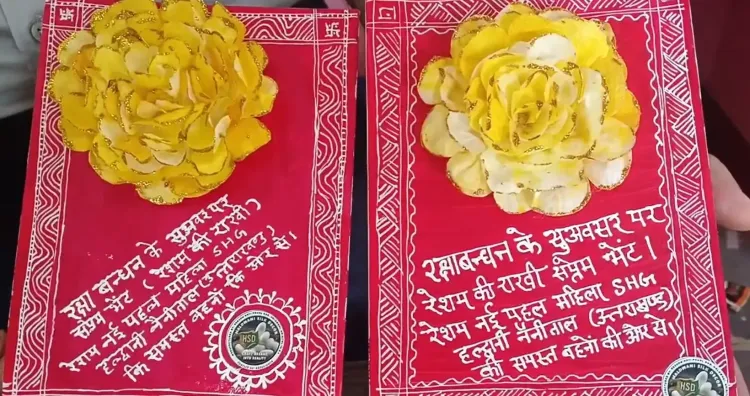 रक्षा बन्धन के सुअवसर पर
सप्रेम भेंट (रेशम की राखी)
रेशम नई पहल महिला SHG
हल्द्वानी नैनीताल (उत्तराखण्ड)
कि समस्त बहनों कि ओर से।
HSD
रक्षाबन्धन के सुअवसर पर
रेशम की राखी सप्रेम भेंट।
रेशम नई पहल महिला SHG
हल्द्वानी नैनीताल (उत्तराखण्ड)
की समस्त बहनों की और से।
HSD